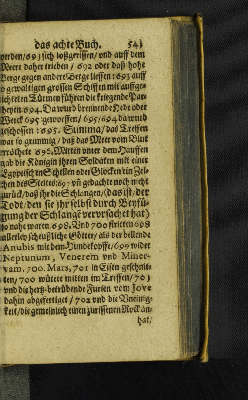 das achte Buch. 541
werden/691 sich loßgerissen/ und auff dem
Meere daher trieben/ 692 oder daß hohe
Berge gegen andere Berge liessen: 693 auff
so gewaltigen grossen Schiffen mit auffge-
richteten Türmen führen die kriegende Par-
theyen. 694. Da wurd brennende Hede oder
Werck 695 geworffen/ 695/694 da wurd
geschossen: 695. Summa/ das Treffen
war so grimmig/ daß das Meer vom Blut
erröthete 696. Mitten unter dem Hauffen
gab die Königin ihren Soldaten mit einer
Egyptischen Schellen oder Glocken ein Zei-
chen des Streites: 697 uñ gedachte noch nicht
zurück/ daß ihr die Schlangen/ (das ist/ der
Todt/ den sie ihr selbst durch Beyfü-
gung der Schlange verursachet hat)
so nahe waren. 698. Und 700 stritten 698
allerley scheußliche Götter/ als der bellende
Anubis mit dem Hundekopffe/ 699 wider
Neptunum, Venerem und Miner-
vam. 700. Mars, 701 in Eisen geschnit-
ten/ 700 wütete mitten im Treffen/ 703
und die hertz-betrübende Furien vom Jove
dahin abgefertiget/ 702 und die Uneinig-
keit/ die gemeinlich einen zurissenen Rock an-
hat/